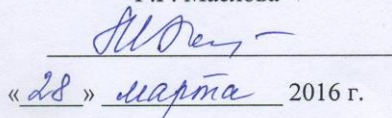 «28» марта 2016 г.